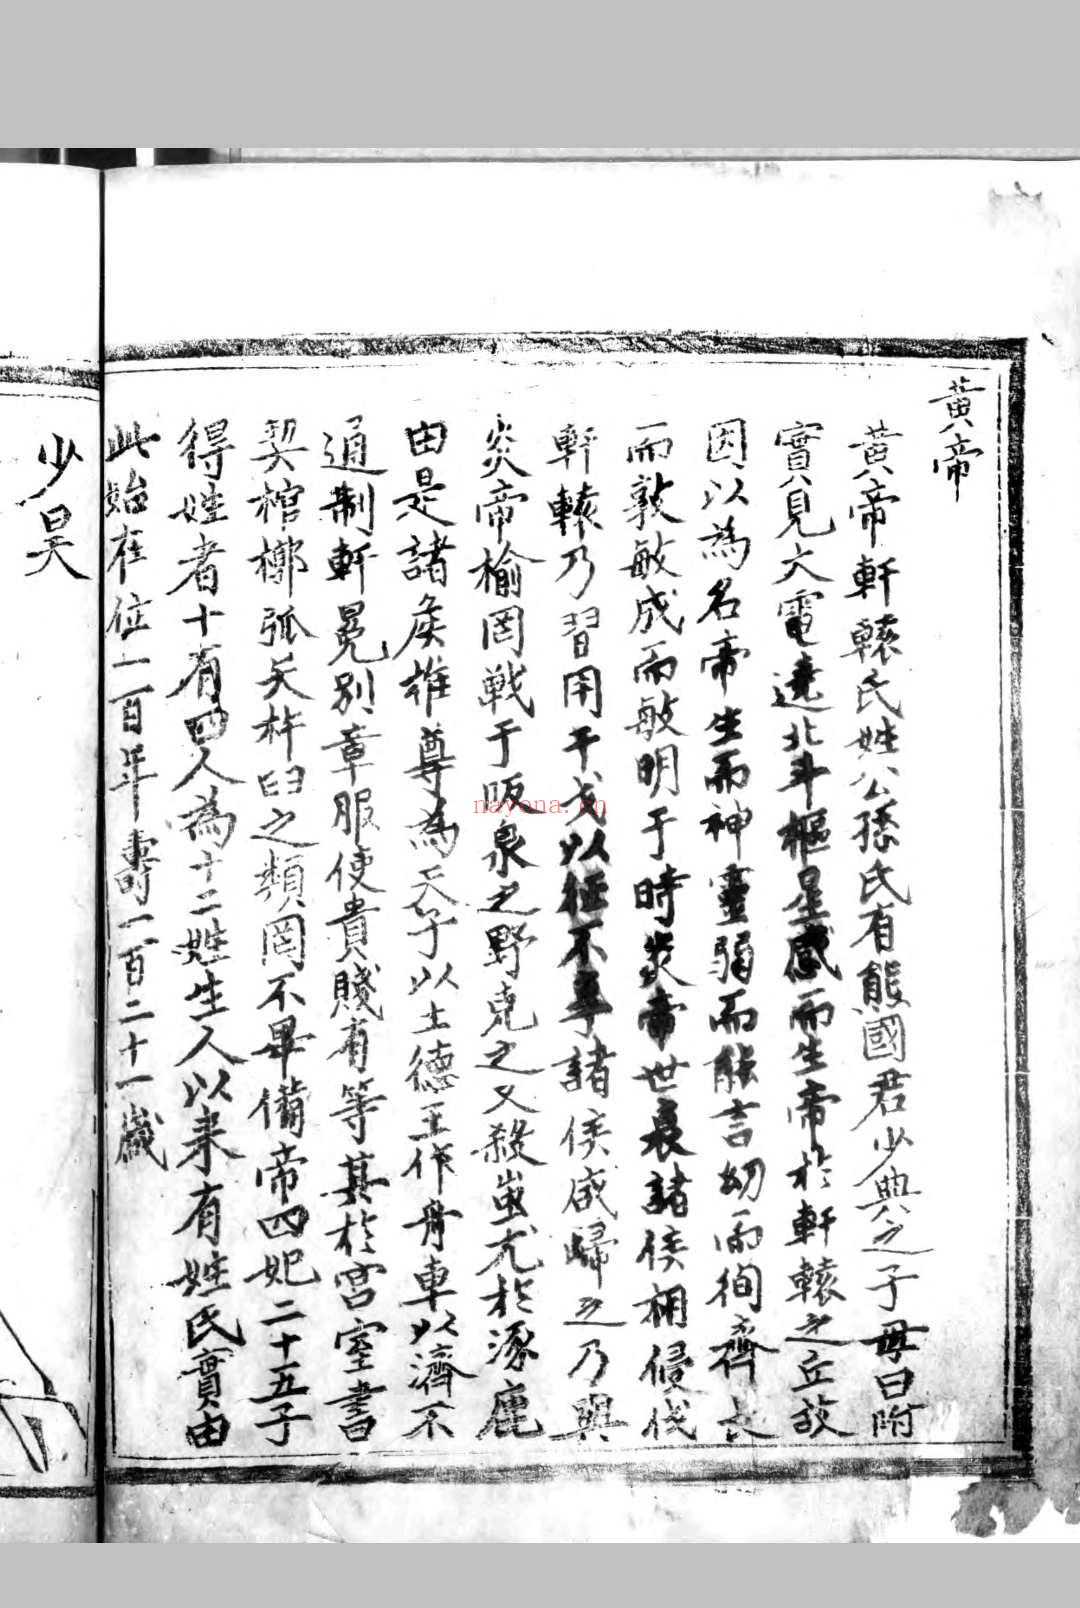 黃帝
黃帝軒轅氏姓公孫氏有熊國君少典之子母曰附
寶見大電遶北斗樞星感而生帝於軒轅之丘故
因以為名帝生而神靈弱而能言幼而徇齊長
而敦敏成而敏明于時炎帝世衰諸侯相侵伐
軒轅乃習用干戈以征不享諸侯咸歸之乃與
炎帝榆罔戰于阪泉之野克之又殺蚩尤於涿鹿
由是諸侯推尊為天子以土德王作舟車以濟不
通制軒冕別章服使貴賤有等其於宮室書
契棺槨弧矢杵臼之類罔不畢備帝四妃二十五子
得姓者十有四人為十二姓生人以来有姓氏實由
此始在位一百年壽一百二十一歲
少昊
nayona.cn